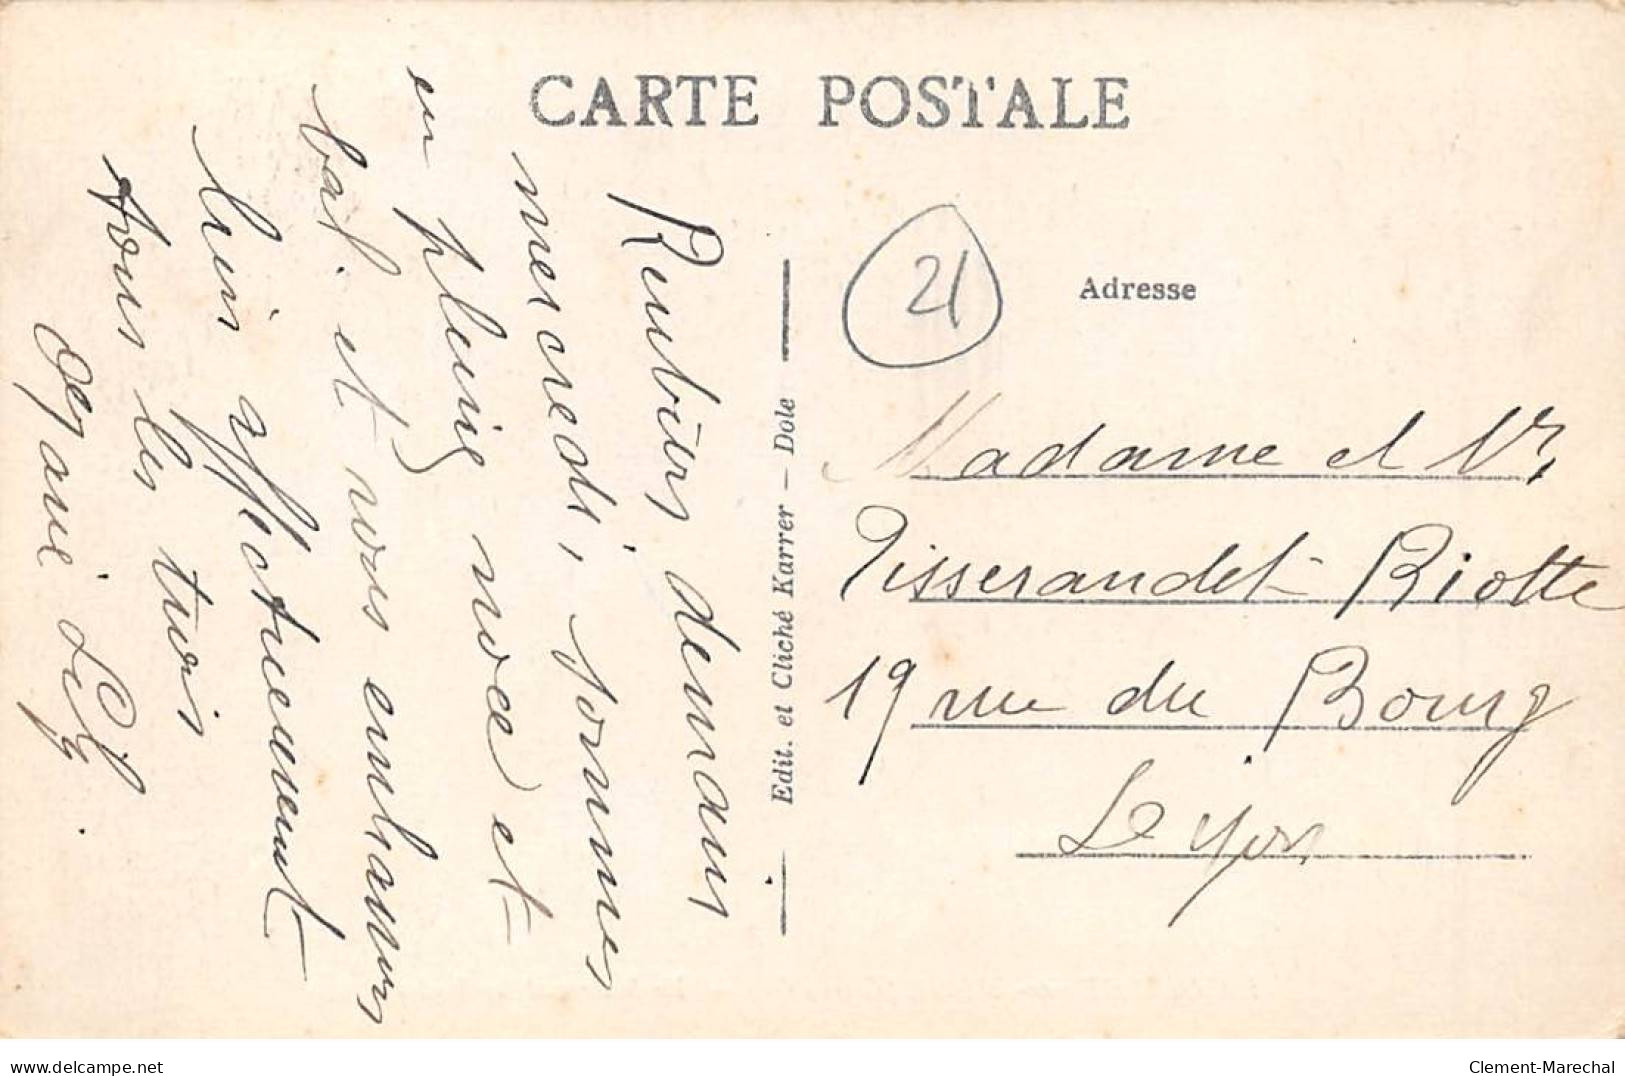 CARTE POSTALE
Rentrés demain
mercredi, sommes
en pleine noce et
bal. et vous embrassons
bien affectueusement
tous les trois
Lily.
Edit. et Cliché Karrer - Dole
21
Adresse
Madame et Mr
Tisserandet-Riotte
19 rue du Bourg
Dijon
delcampe.net
Clement-Marechal